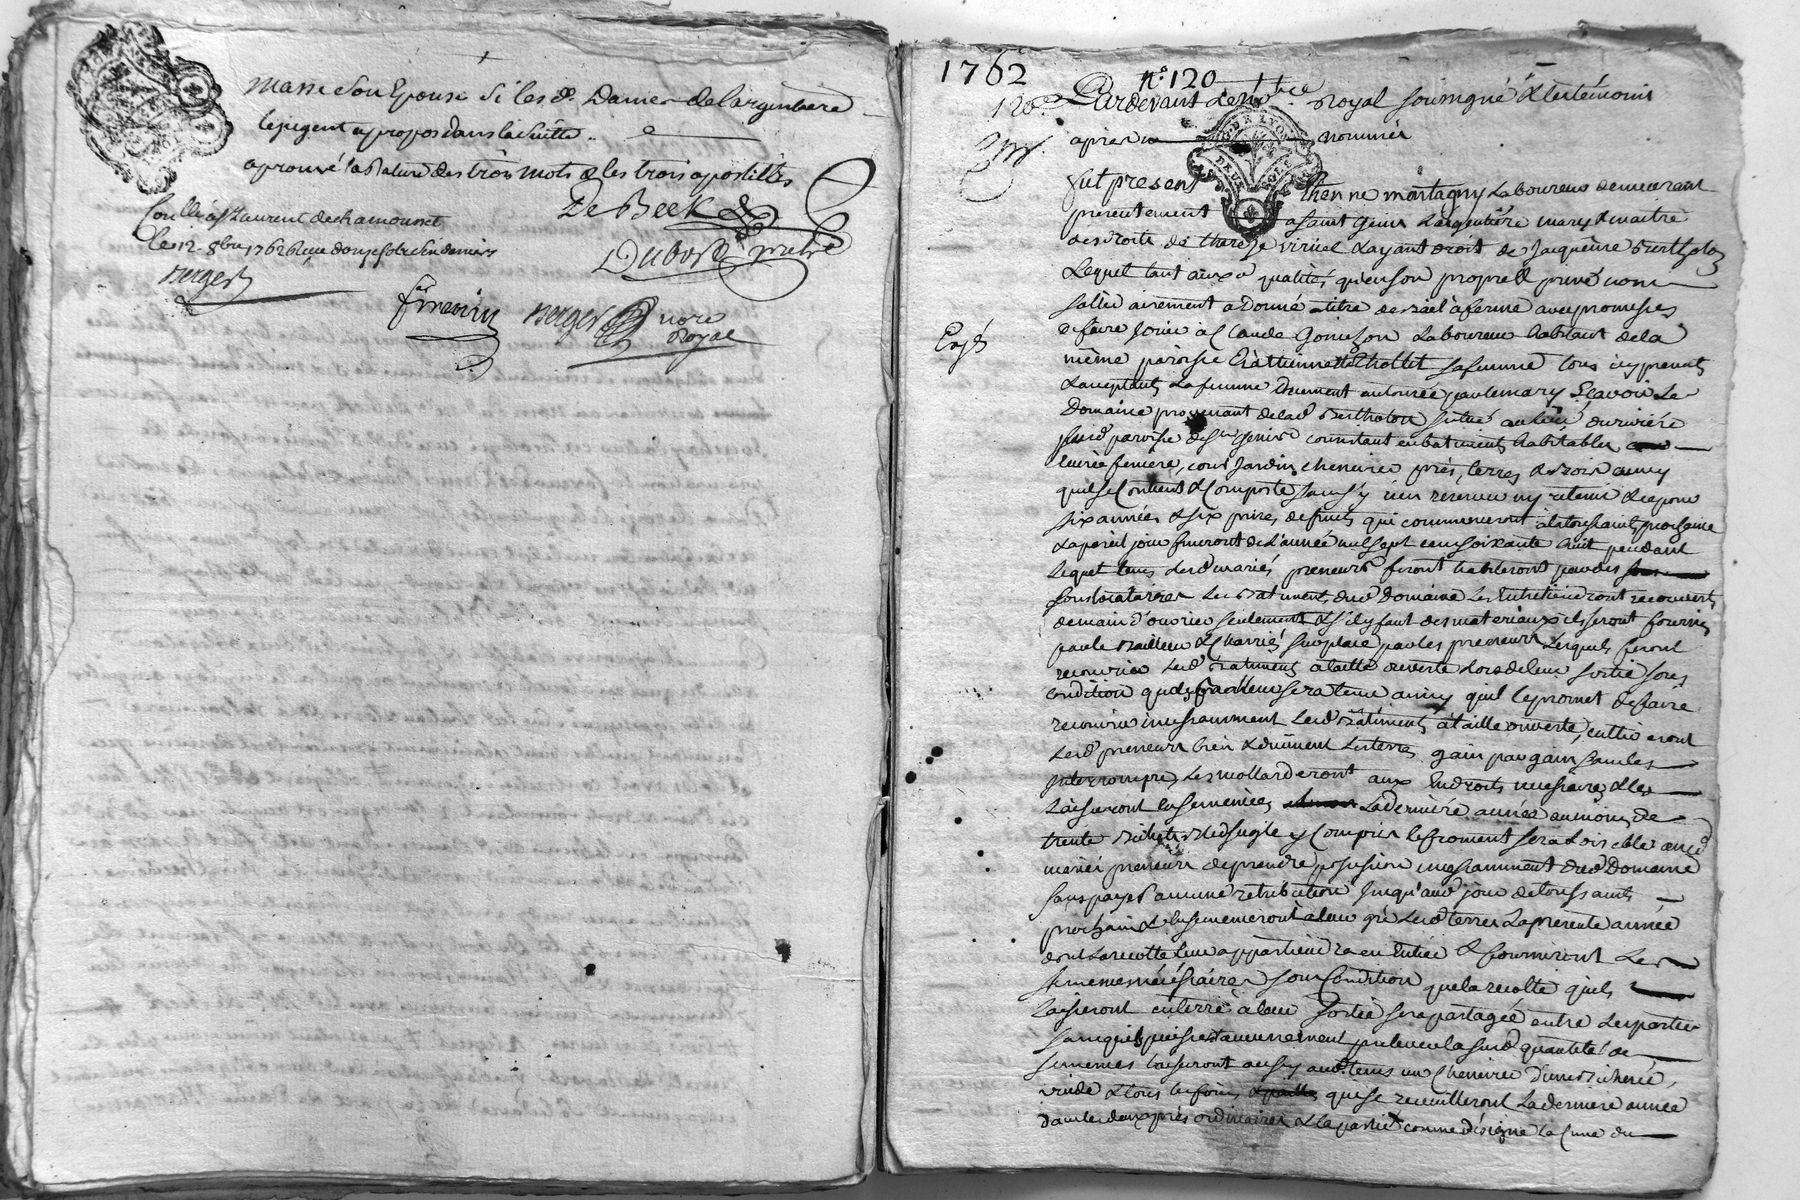 masse son Epouse si les d. Dames de largentiere
le jugent a propos dans la suitte
aprouvé la rature des trois mots & les trois apostilles
De Beek
Conllé a St Laurent de chamousset
le 12 8bre 1762 Reçu douze sols six deniers
Dubost pretre
Berger
Berger nore
Royal
1762
n° 120
120e Pardevant le nore Royal soussigné & les témoins
apres nommés
DE LYON
DEUX SOLS
fut present Ethienne montagny Laboureur demeurant
presentement a saint Genis Largentiere mary & maitre
des droits de therese viriuel & ayant droit de Jacqueme Bertholon
Lequel tant aux d qualités qu'en son propre & privé nom
sollidairement a Donné a titre de bail à ferme avec promesses
Expé
de faire Jouir à Claude Gonichon Laboureur habitant de la
même paroisse & à Ettiennette thollet sa femme tous icy presents
& acceptants La femme Duement autorisée par le mary Sçavoir Le
Domaine provenant de lad Bertholon situé au lieu du riviere
susd paroisse de St Genis consistant en batiments habitables
Ecurie feniere, cour Jardin, cheneviere prés, terres & bois ainsy
qu'il se Contient & Comporte sans s'y rien reserver ny retenir & ce pour
six années & six prises de fruits qui commenceront à la toussaints prochaine
& a pareil jour finiront de L'année mil sept cent soixante huit pendant
lequel tems Lesd mariés preneurs feront habiteront par des
souslocataires Les Batiments dud Domaine Les Entretiendront recouverts
de main d'ouvrier seulement & s'il y faut des materiaux ils seront fournis
par le Bailleur & Charriés sur place par les preneurs Lesquels feront
recouvrir Lesd Batiments a taille ouverte Lors de leur sortie sous
condition que led Bailleur sera tenu ainsy qu'il le promet de faire
recouvrir incessamment Lesd Bâtiments à taille ouverte, cultiveront
Lesd preneurs bien & duëment Les terres gain par gain sans les
Interrompre, Les mollarderont aux Endroits necessaires & les
Laisseront Ensemencées La derniere année au moins de
trente Bichets Bled seigle y Compris le froment sera Loisible auxd
mariés preneurs de prendre possession incessamment dud Domaine
sans payer aucune retribution Jusqu'aud jour de toussaints
prochain & Ensemenceront à leur gré Lesd terres La presente année
dont La recolte leur appartiendra en Entier & fourniront Les
semences nécéssaires sous Condition que la recolte qu'ils
Laisseront en terre à leur sortie sera partagée entre Les parties
sans qu'ils puissent aucunement prelever la susd quantité de
semences laisseront aussy aud tems un Chenevier d'une bicherée,
vuide & tous les foins qui se recueilleront La derniere année
dans les deux prés ordinaires & la partie comme désigne la Cure du